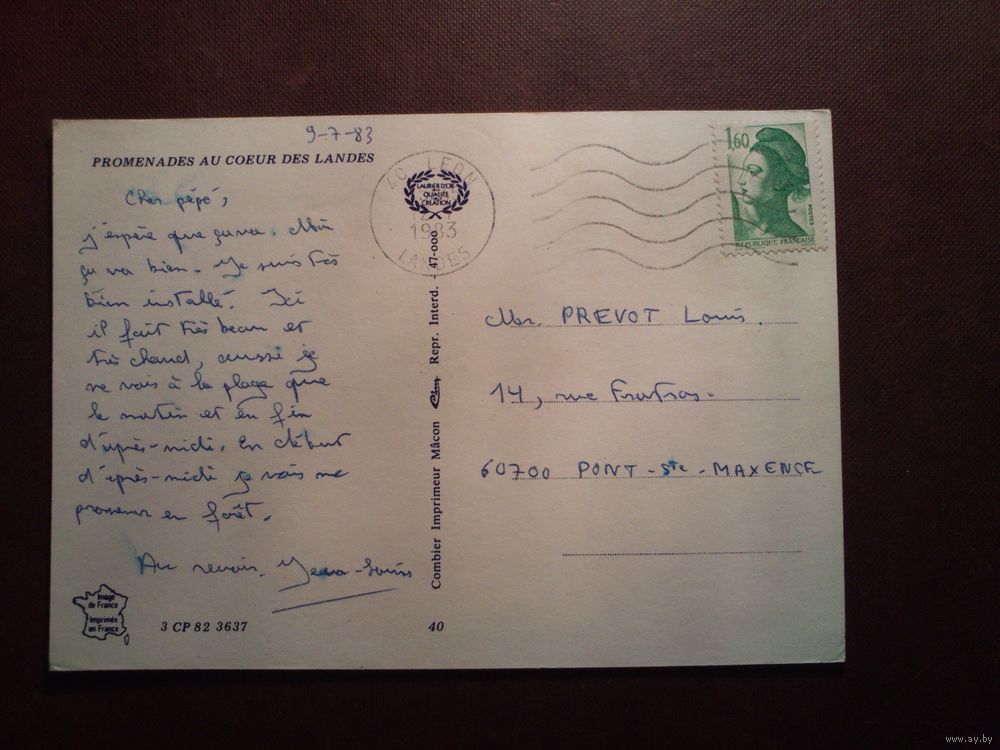 9-7-83
PROMENADES AU COEUR DES LANDES
Cher pépé,
j'espère que ça va. Moi
ça va bien. Je suis très
bien installé. Ici
il fait très beau et
très chaud, aussi je
ne vais à la plage que
le matin et en fin
d'après-midi. En début
d'après-midi je vais me
promener en forêt.
Au revoir. Jean-Louis
Image
de France
Imprimés
en France
3 CP 82 3637
40
40 LEON
1983
LANDES
LAURIER D'OR
DE LA
QUALITÉ
CRÉATION
Combier Imprimeur Mâcon Cim Repr. Interd. - 47-000
1,60
POSTES
REPUBLIQUE FRANÇAISE
Mr. PREVOT Louis.
14, rue
60700 PONT-Ste-MAXENCE
www.ay.by